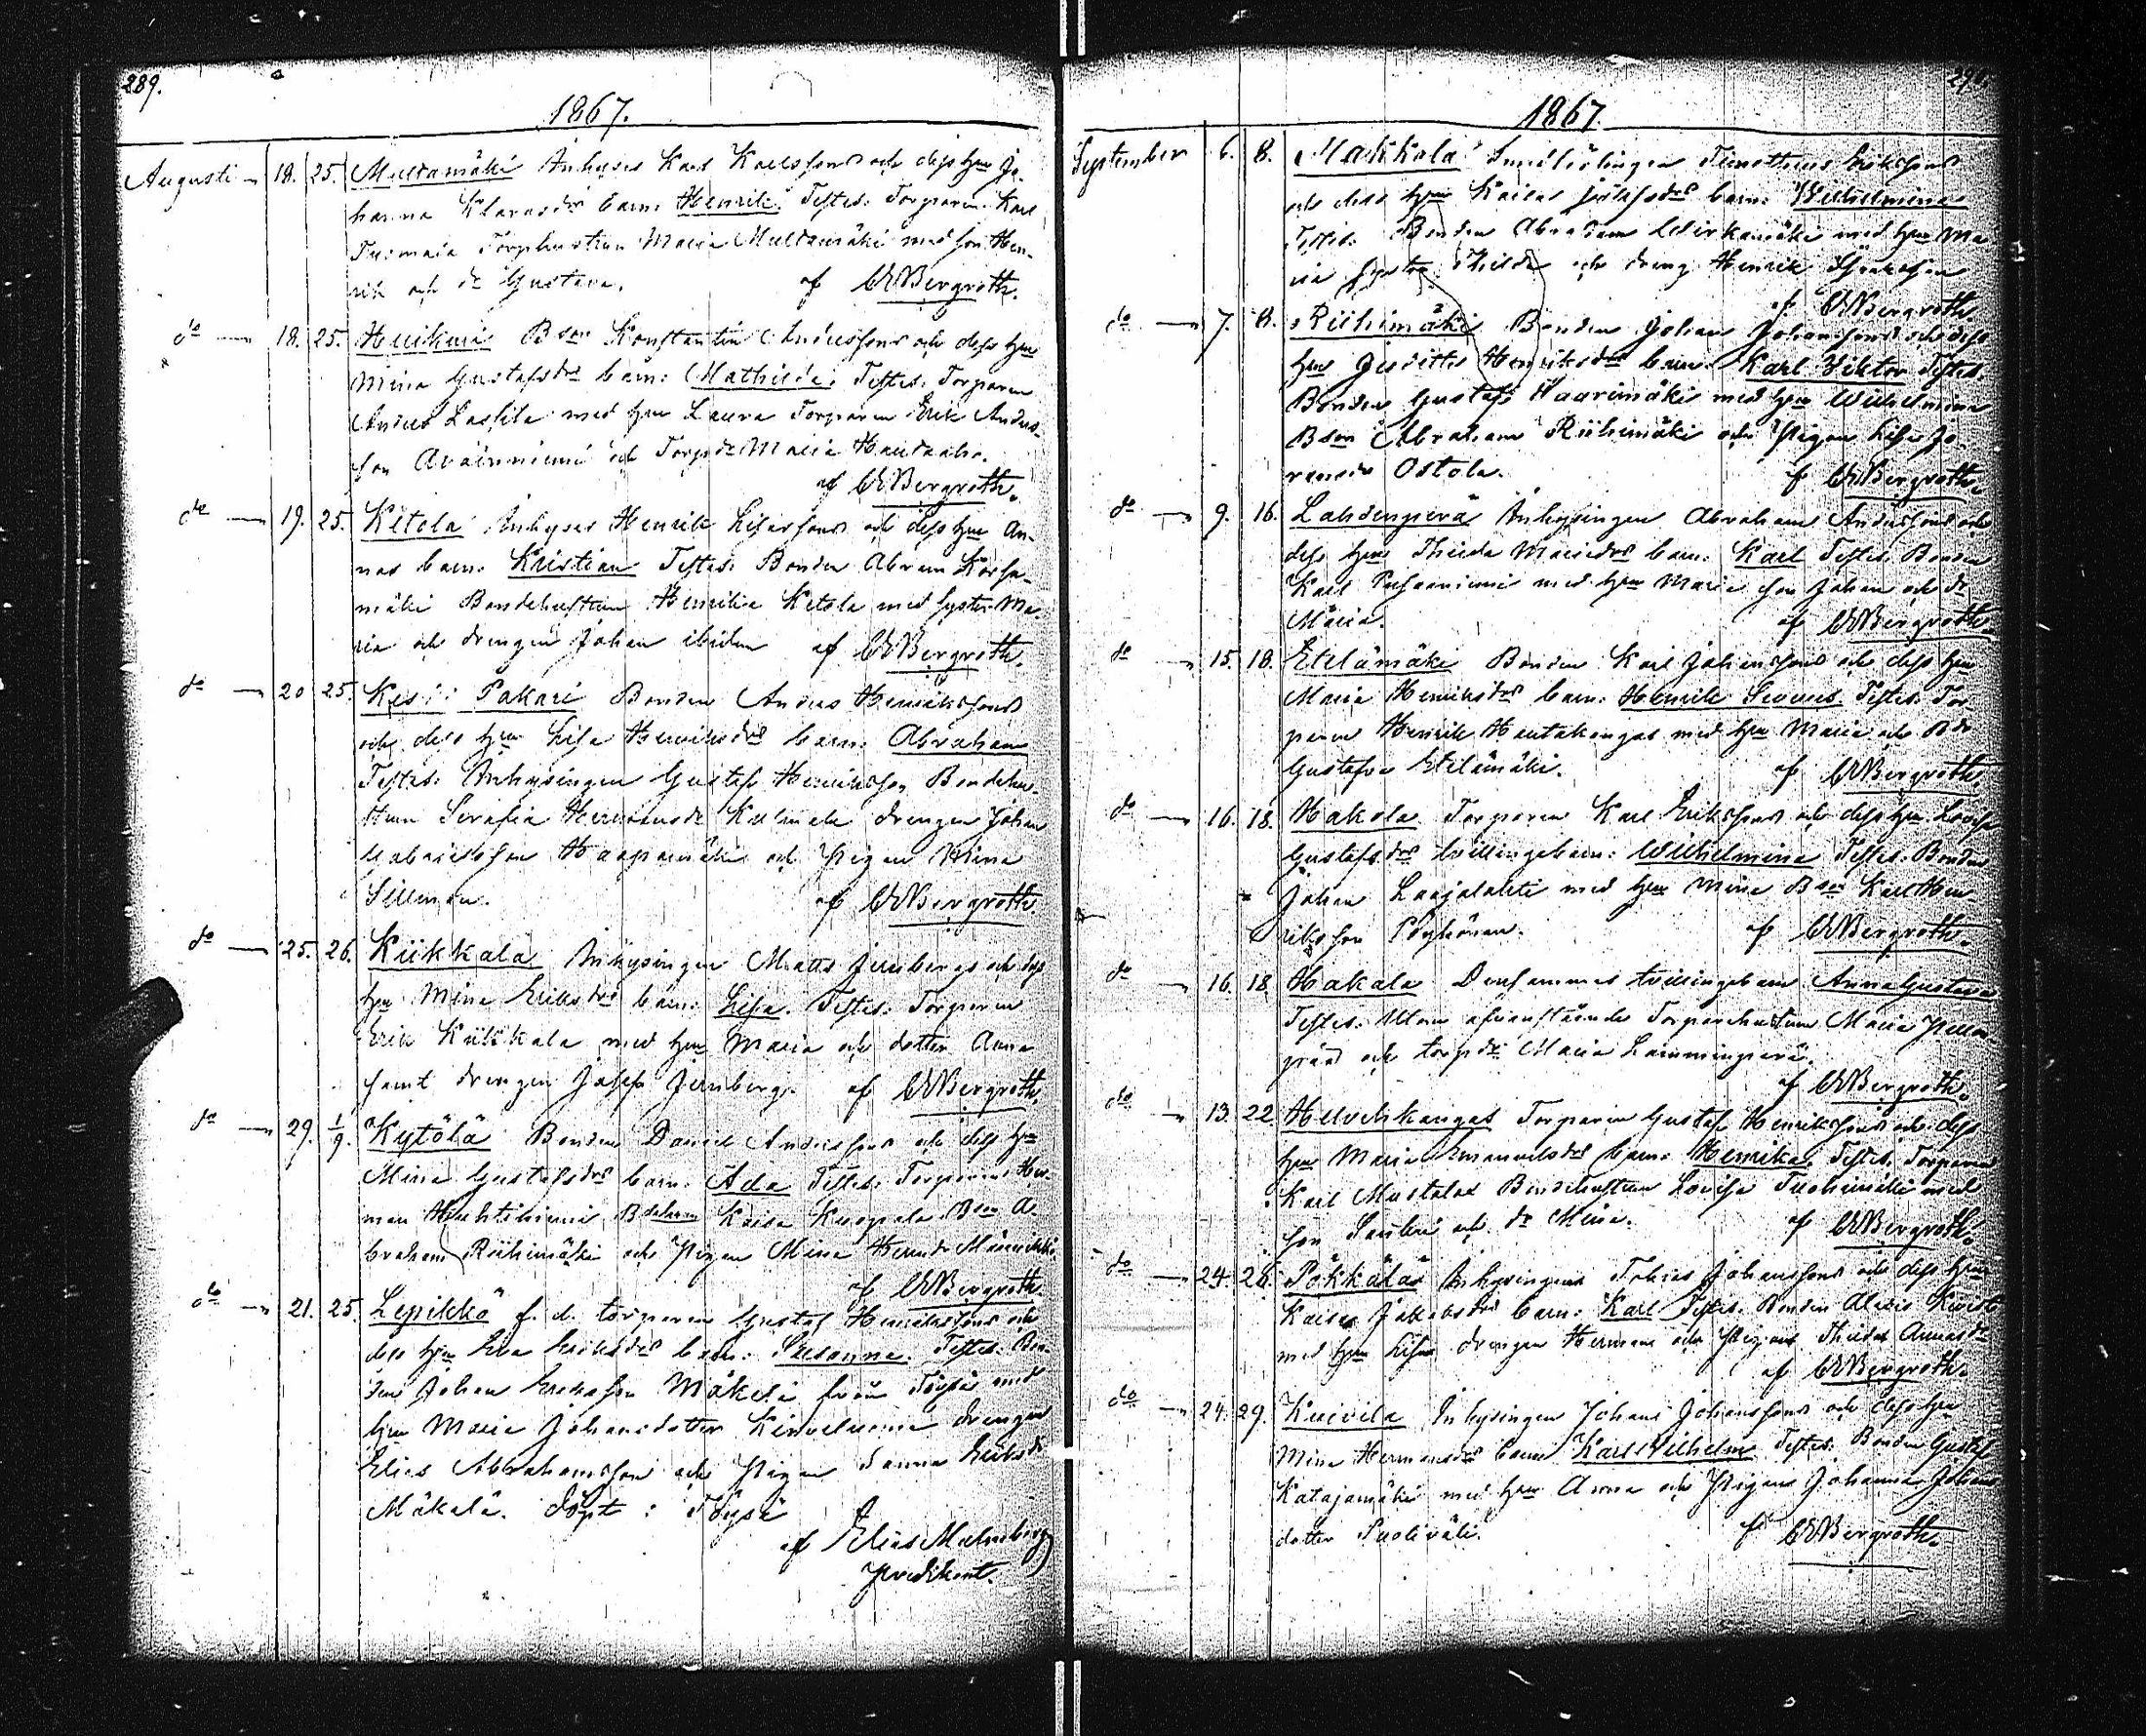 289.
1867.
Augusti 18. 25. Multamäki Inhyses Karl Karlssons och dess hu Jo-
hanna Klarasdr barn: Henrik. Testes: Torparen Karl
Torphustrun Maria Multamäki med son Hen-
rik och dr Gustava. af CEBergroth.
do 18. 25. Bson Konstantin Anderssons och dess hu
Mina Gustafsdrs barn: Mathilda. Testes: Torparen
Anders Lassila med hu Laura Torparen Erik Anders-
son och Torpdr Maria
af CEBergroth.
do 19. 25. Ketola Inhyses Henrik Lisassons och dess hu An-
nas barn: Kristian Testes: Bonden Abram
mäki Bondehustrun Henrika Ketola med syster Ma-
ria och drengen Johan ibidem af CEBergroth.
do 20 25. Keski Pakari Bonden Anders Henrikssons
och dess hu Lisa Henriksdrs barn: Abraham
Testes: Inhysingen Gustaf Henriksson, Bondehu-
strun Serafia Hermansdr drengen Johan
Gabrielsson Haapamäki och Pigan Mina
Sillman. af CEBergroth.
do 25. 26. Kiikkala Inhysingen Matts Jernbergs och dess
hu Mina Eriksdrs barn: Lisa. Testes: Torparen
Erik Kiikkala med hu Maria och dotter Anna
samt drengen Josef Jernberg. af CEBergroth.
do 29. 1/9. Kytölä Bonden Daniel Anderssons och dess hu
Mina Gustafsdrs barn: Ada Testes: Torparen Her-
man Huhtiniemi Bdehun Kaisa Kuoppala Bson A-
braham Riihimäki och Pigan Mina Hermdr Männikkö.
af CEBergroth.
do 21. 25. Lepikkö f. d. torparen Gustaf Henrikssons och
dess hu Eva Eriksdrs barn: Susanna. Testes: Bon-
den Johan Eriksson Mäkelä från Töysä med
hu Maria Johansdotter drengen
Elias Abrahamsson och Pigan Sanna Eriksdr
Mäkelä. Döpt i Töysä
af Elias Malmberg
Predikant.
1867.
September 6. 8. Makkola Timotheus Erikssons
och dess hu Kaisas Josefsdrs barn: Wilhelmina
Testes: Bonden Abraham med hu Ma-
ria syster Thilda och dreng Henrik
af CEBergroth.
do 7. 8. Riihimäki Bonden Johan Johanssons och dess
hu Judiths Henriksdrs barn: Karl Viktor Testes:
Bonden Gustaf Haarimäki med hu Wilhelmina
Bson Abraham Riihimäki och Pigan Lisa Jo-
hansdr Ostola. af CEBergroth.
do 9. 16. Lahdenperä Inhysingen Abraham Anderssons och
dess hu Thilda Mariasdrs barn: Karl Testes: Bonden
Karl med hu Maria son Johan och dr
Maria. af CEBergroth.
do 15. 18. Etelämäki Bonden Karl Johanssons och dess hu
Maria Henriksdrs barn: Henrik Testes: Tor-
paren Henrik Hautakangas med hu Maria och Bdr
Gustafva Etelämäki. af CEBergroth.
do 16. 18. Hakala Torparen Karl Erikssons och dess hu Lovisa
Gustafsdrs tvillingebarn: Wilhelmina Testes: Bonden
Johan Laajalahti med hu Mina Bson Karl Hen-
riksson Pöyhönen. af CEBergroth.
do 16. 18. Hakala Densammes tvillingebarn Anna Gustava
Testes: Utom ofvanstående Torparehustrun Maria
och torpdr Maria Lamminperä.
af CEBergroth.
do 13. 22 Torparen Gustaf Henrikssons och dess
hu Maria Emanuelsdrs barn: Henrika. Testes: Torparen
Karl Mustalax Bondehustrun Lovisa Tuohimäki med
son och dr Mina. af CEBergroth.
do 24. 28. Pökkälä Inhysingen Tobias Johanssons och dess hu
Kaisa Jakobsdrs barn: Karl Testes: Bonden
med hu Lisa drengen Herman och Pigan Thilda Annasdr
af CEBergroth.
do 24. 29. Kuivila Inhysingen Johan Johanssons och dess hu
Mina Hermansdrs barn Karl Vilhelm Testes: Bonden Gustaf
Katajamäki med hu Anna och Pigan Johanna Johans-
dotter Puoliväli. af CEBergroth.